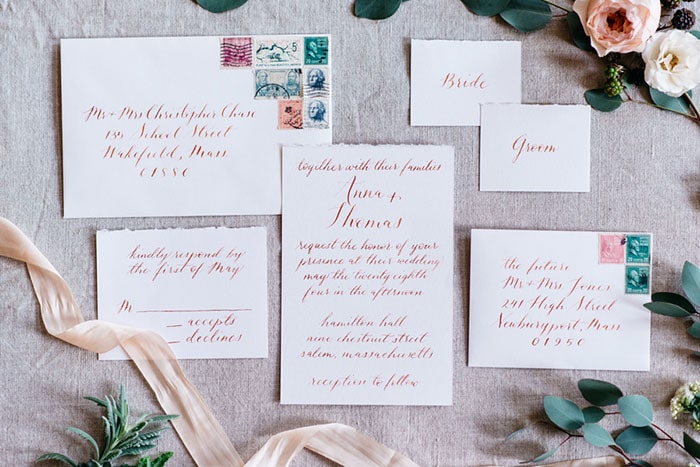 Mr + Mrs Christopher Chase
135 School Street
Wakefield, Mass
01880
5
Bride
Groom
together with their families
Anna +
Thomas
request the honor of your
presence at their wedding
may the twenty eighth
four in the afternoon
hamilton hall
nine chestnut street
salem, massachusetts
reception to follow
kindly respond by
the first of May
M
accepts
declines
the future
Mr + Mrs Jones
241 High Street
Newburyport, Mass
01950